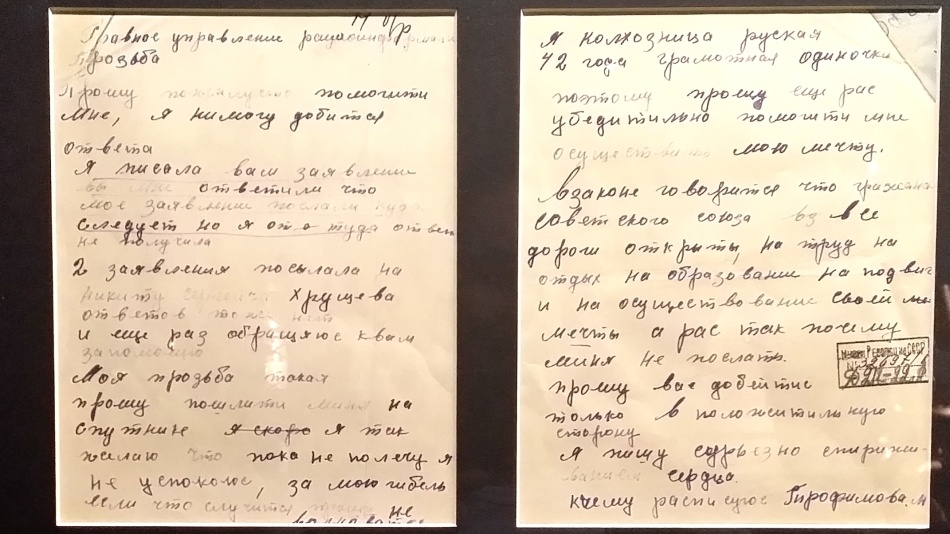 Главное управление радиоинформаци
Прозьба
Прошу пожалуста помогити
мне, я нимогу добится
ответа
Я писала вам заявление
вы мне ответили что
мое заявление послали куда
следует но я от о туда ответ
не получила
2 заявления посылала на
никиту сергеича Хрущева
ответов тоже нет
и еще раз обращяюс квам
запомощю
Моя прозьба такая
прошу пошлити миня на
спутнике я скоро я так
желаю что пока не полечу я
не успокоюс, за мою гибель
если что случится прошу не
волноватся
Я колхозница руская
42 года грамотная одиночка
поэтому прошу еще рас
убедительно помогити мне
осуществить мою мечту.
взаконе говорится что граждан
советского союза вз все
дороги открыты, на труд на
отдых на образование на подвиг
и на осуществование своей
мечты а рас так почему
миня не послать.
прошу вас добейтис
только в положитильную
сторону
я пишу серьезно
сердца.
кчему распис уюс
Музей Революции СССР